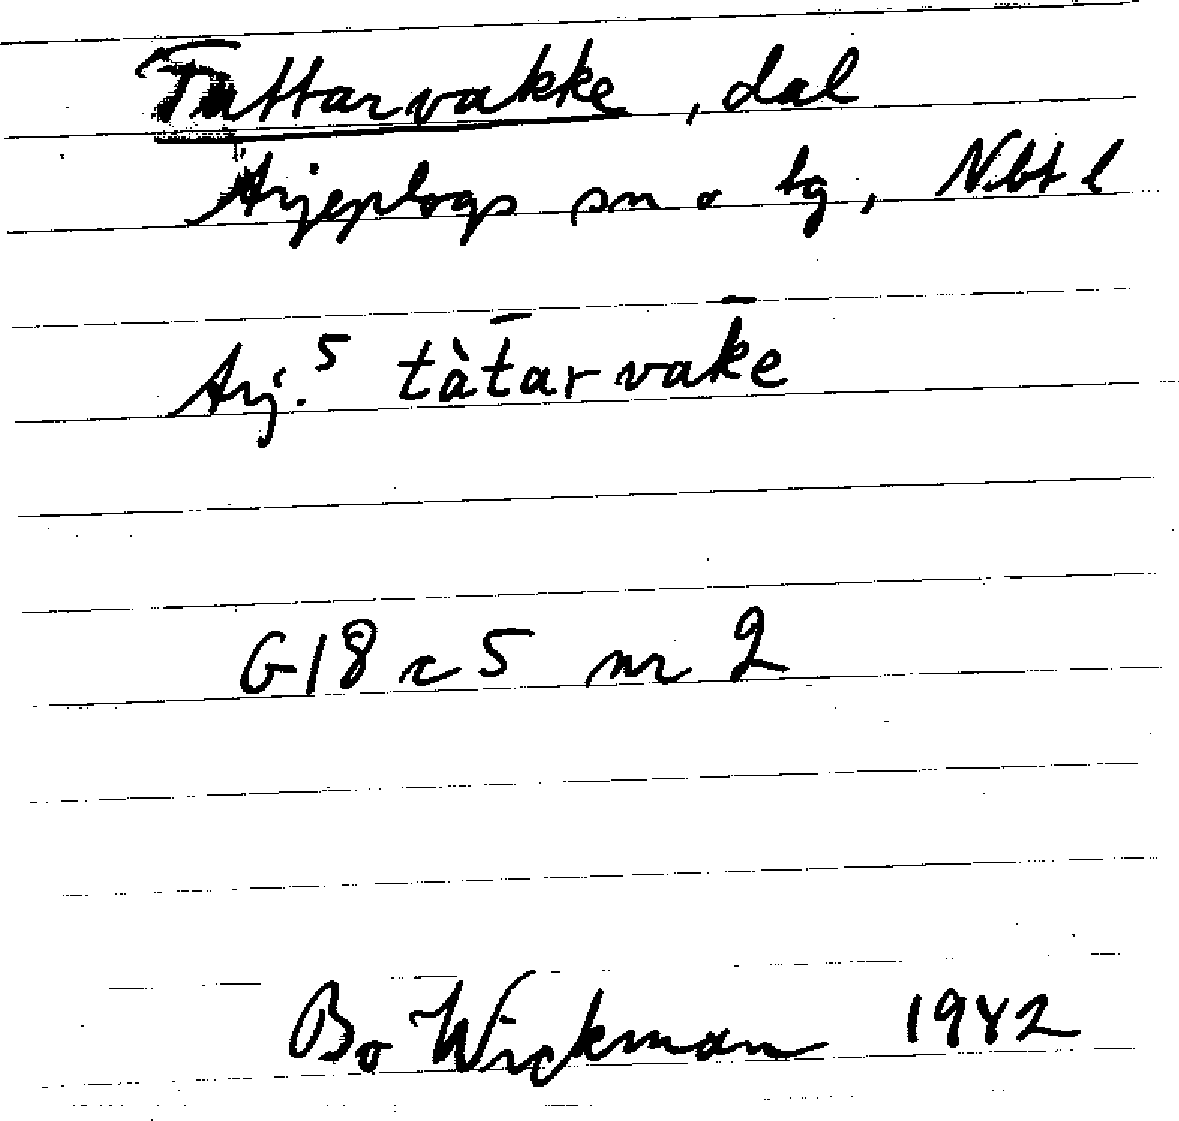 Tattarvakke, dal
Arjeplogs sn o tg, Nbt l
Arj.⁵ tàt̄arvak̄e
G18 c 5 nr 2
Bo Wickman 1942